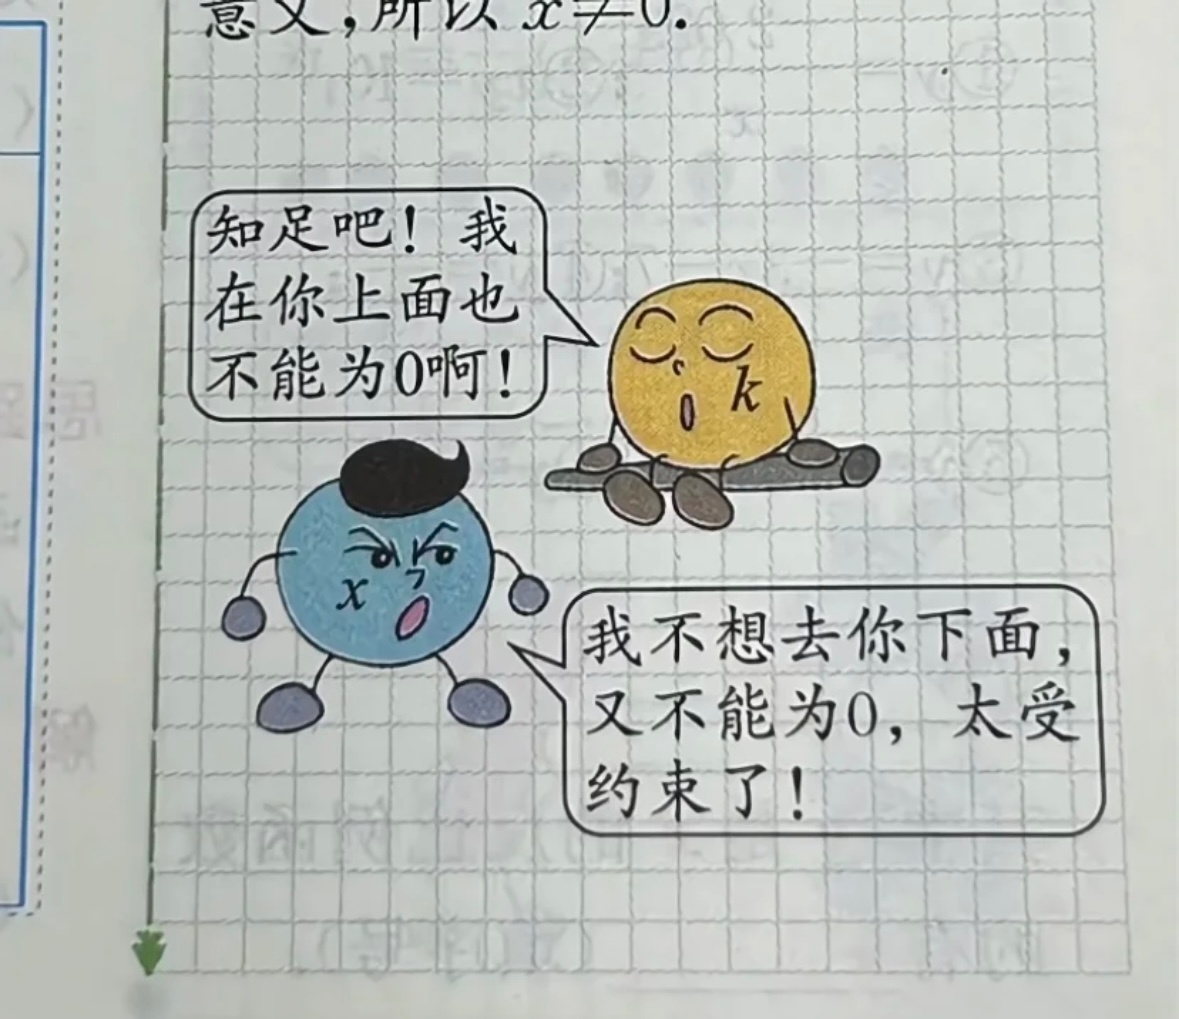 意义，所以 x≠0.
知足吧！我
在你上面也
不能为0啊！
k
x
我不想去你下面，
又不能为0，太受
约束了！